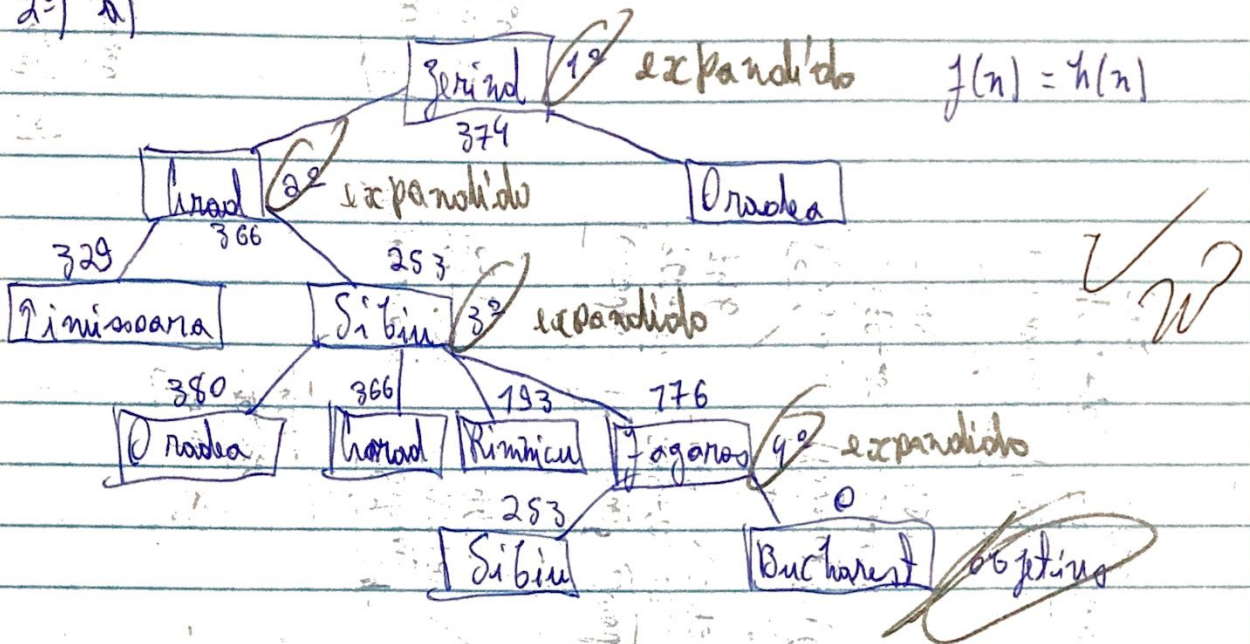 2=) a)
Zerind 1º expandido f(n) = h(n)
374
Arad 2º expandido Oradea
366
329 253
Timissoara Sibiu 3º expandido
380 366 193 176
Oradea Arad Rimnicu Fagaras 4º expandido
253 0
Sibiu Bucharest objetivo